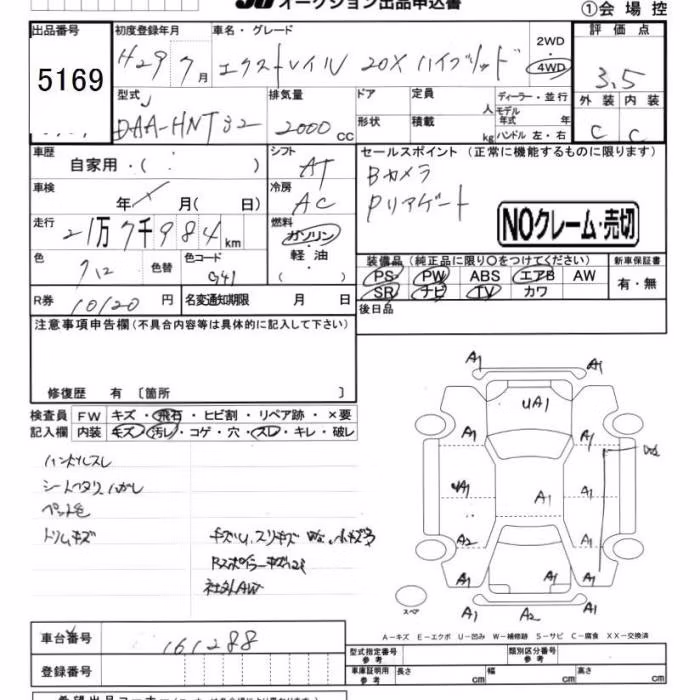 オークション出品申込書
①会 場 控
出品番号 初度登録年月 車名・グレード 2WD 評 価 点
5169 H29 7月 エクストレイル 20X ハイブリッド 4WD 3.5
型式 排気量 ドア 定員 ディーラー・並行 外 装 内 装
DAA-HNT32 2000cc 人 モデル年式 年 C C
形状 積載 kg ハンドル 左・右
車歴 シフト セールスポイント (正常に機能するものに限ります)
自家用・( ) AT Bカメラ
車検 冷房 PWリアゲート
年 月( 日) AC NOクレーム・売切
走行 燃料
21万7千984km ガソリン・軽油・( )
装備品(純正品に限り○をつけてください) 新車保証書
色 色替 色コード PS PW ABS エアB AW 有・無
クロ G41 SR ナビ TV カワ
R券 10120円 名変通知期限 月 日 後日品
注意事項申告欄(不具合内容等は具体的に記入して下さい)
修復歴 有 〔箇所 〕
検査員 FW キズ・飛石・ヒビ割・リペア跡・×要
記入欄 内装 キズ・汚レ・コゲ・穴・スレ・キレ・破レ
ハンドルスレ
シートヘタリ
トリムキズ
キズU、スリキズ
社外AW
A1 A1
UA1
A1 A1
UA1 A1 A1
A2 A1
A1 A1 A1
スペア
A1 A2 A1
A－キズ E－エクボ U－凹み W－補修跡 S－サビ C－腐食 XX－交換済
車台番号 161288
型式指定番号 参考 類別区分番号 参考
登録番号 車庫証明用 参考 長さ cm 幅 cm 高さ cm